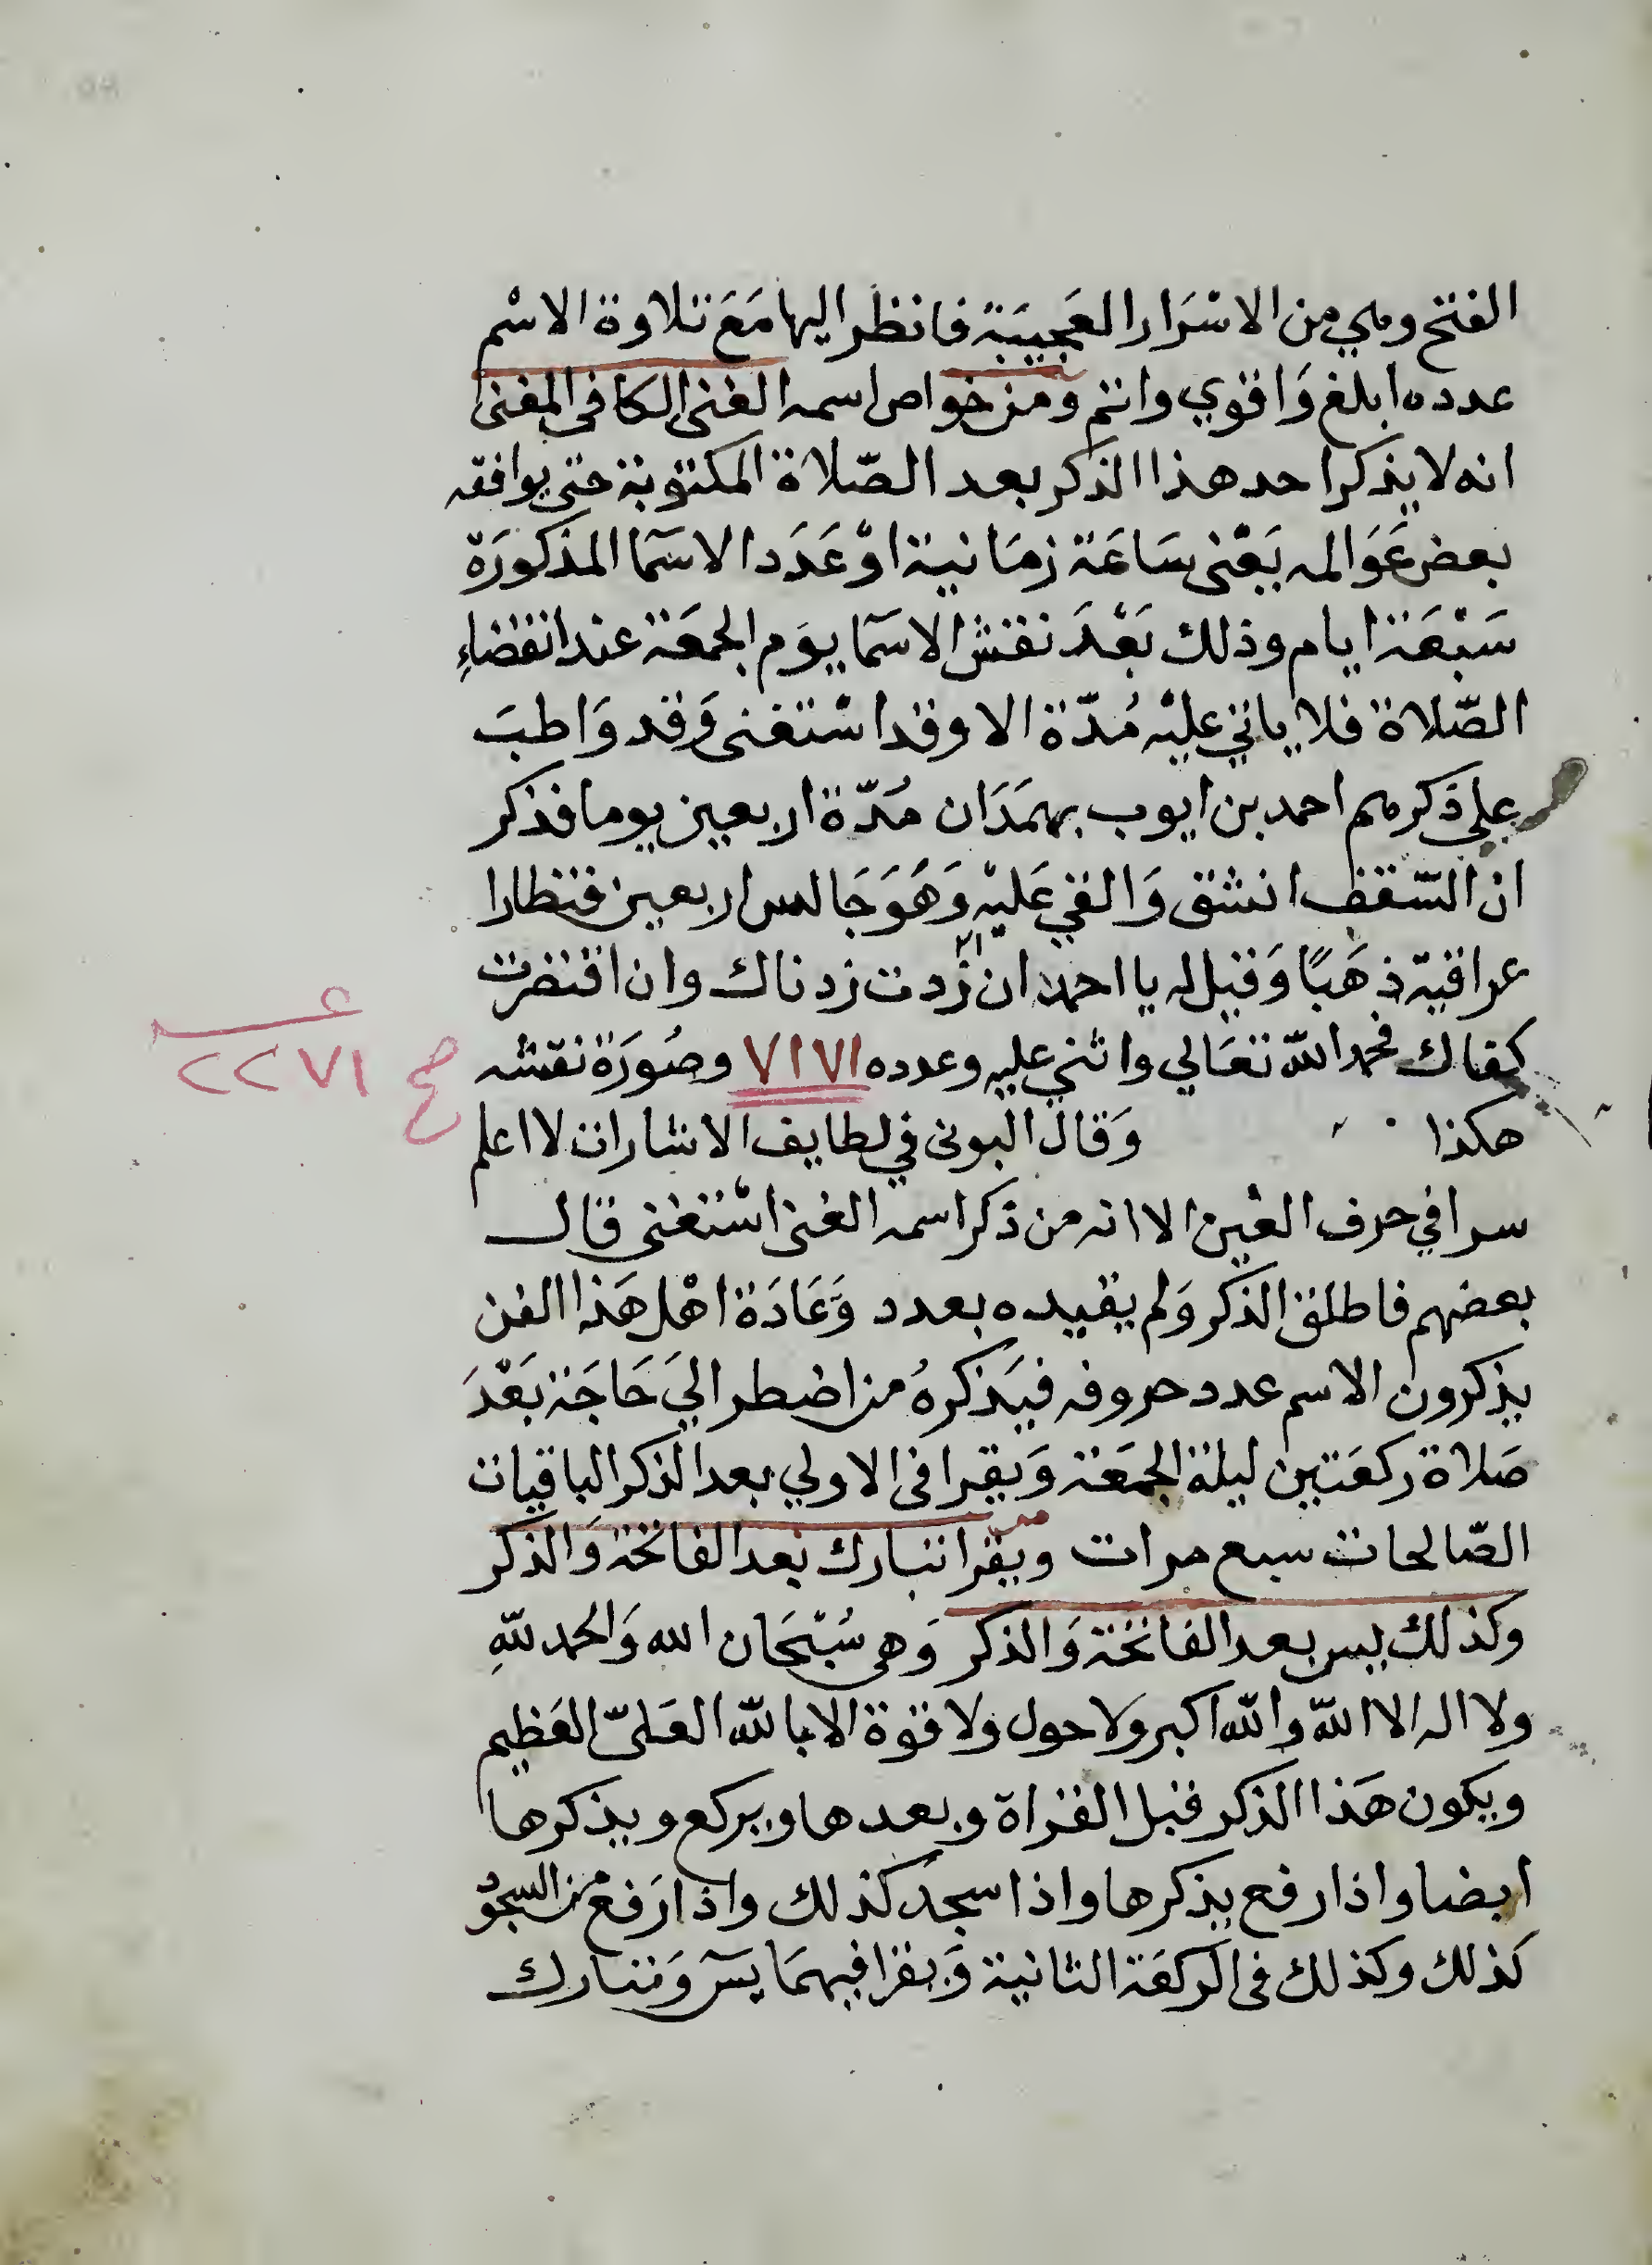 الفتح وهي من الاسْرَار العَجيبَة فانظر اليها مَعَ تلاوة الاسْم
عدده ابلغ وَاقوي واتم ومن خواص اسمه الغنى الكافى المغنى
انه لا يذكر احد هذا الذكر بعد الصّلاة المكتوبة حتى يوافقه
بعض عَوَالمه يَعْنى سَاعَة زمَانية اوْ عَدَد الاسَما المذكورَة
سَبْعَة ايام وذلك بَعْدَ نقش الاسَما يوَم الجمعَة عند انقضاءِ
الصّلاة فلا ياتي عليْه مُدّة الا وقد اسْتغنى وَقد وَاطبَ
علي ذكرهم احمد بن ايوب بهمَدَان مُدّة اربعين يوما فذكر
ان السّقف انشق وَالقي عَليْه وَهَوَ جَالس اربعين قنطارا
عراقيّة ذهَبًا وَقيل له يا احمد ان زدت زدناك وان اقتصرت
كفاك فحمد اللّه تعَالي واثني عليه وعدده ٧١٧١ وصُورَة نقشه
صح ٢٢٧١
هكذا وَقال البونى في لطايف الاشارات لا اعلم
سرا في حرف الغين الا انه من ذكر اسمه الغنى اسْتغنى قال
بعضهم فاطلق الذكر وَلم يقيده بعدد وَعَادَة اهْل هَذا الفن
يذكرون الاسم عدد حروفه فيَذكرهُ من اضطر اليَ حَاجَة بَعْدَ
صَلاة ركعَتين ليلة الجمعَة وَيقرا فى الاولي بعد الذكر الباقيات
الصّالحات سبع مرات ويقرا تبارك بَعد الفاتحة وَالذكر
وكذلك يس بعد الفاتحة وَالذكر وَهى سُبْحَان الله وَالحمد للّهِ
ولا اله الا اللّه واللّه اكبر ولا حول ولا قوة الا باللّه العَلىّ العَظيم
ويكون هَذا الذكر قبل القراة وبعدها ويركع ويذكرها
ايضا واذا رفع يذكرها واذا سجدَ كذلك واذا رَفع من السجود
كذلك وكذلك فى الركعَة الثانية وَيقرا فيهمَا يسَ وَتبارك